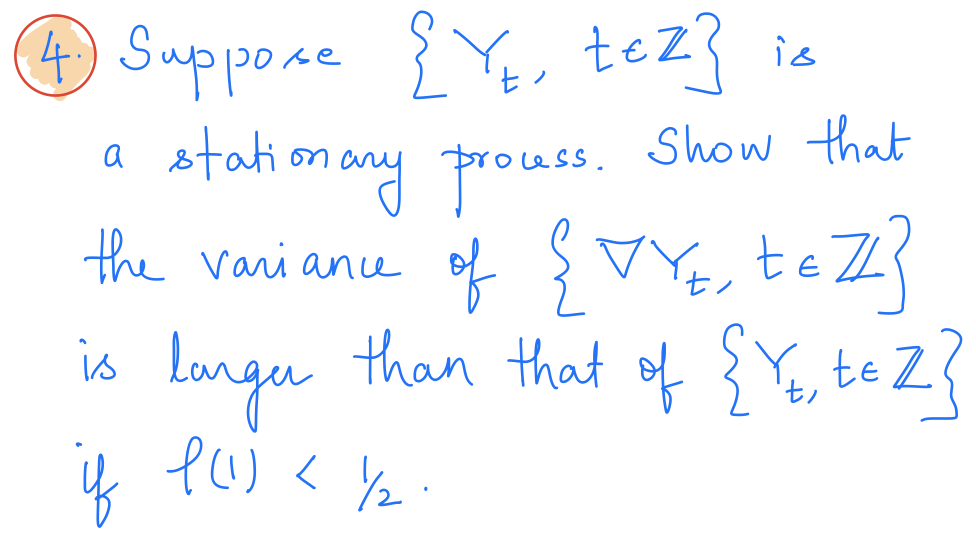 4. Suppose {Y_t, t ∈ ℤ} is
a stationary process. Show that
the variance of {∇Y_t, t ∈ ℤ}
is larger than that of {Y_t, t ∈ ℤ}
if ρ(1) < 1/2.